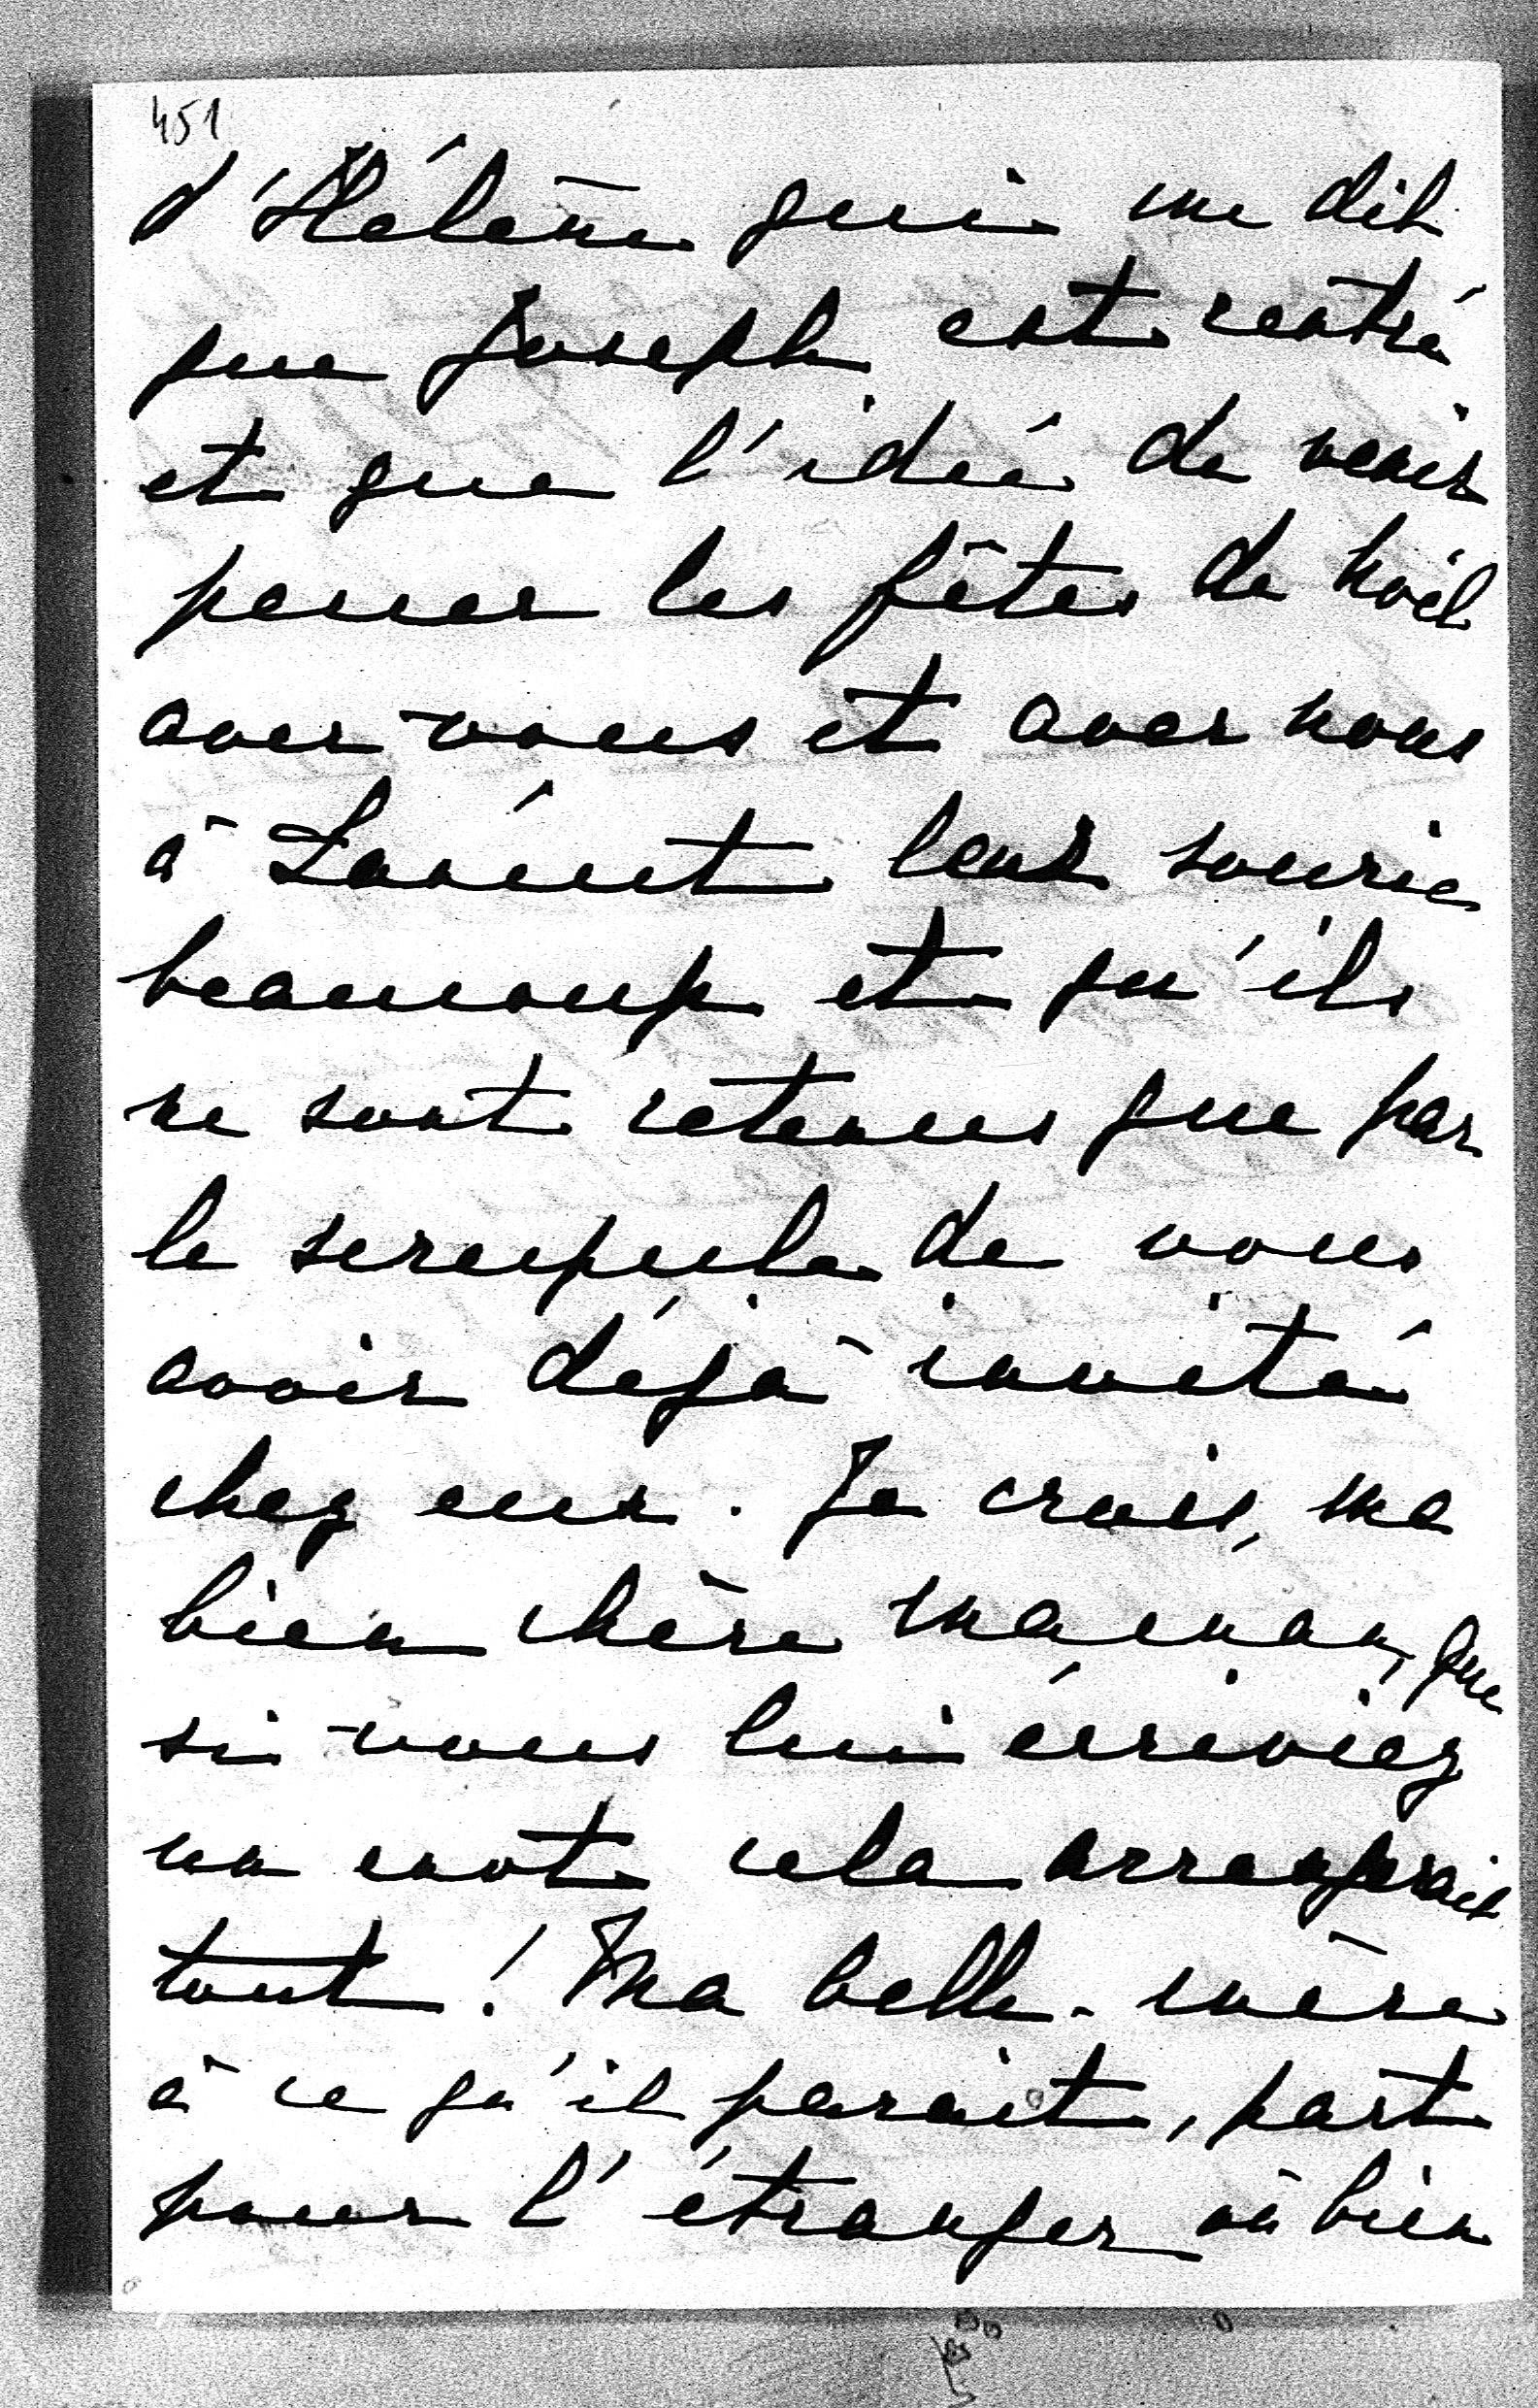 451
d'Hélène qui me dit
que Joseph est rentré
et que l'idée de venir
passer les fêtes de Noël
avec vous et avec nous
à Łańcut leur sourie
beaucoup et qu'ils
ne sont retenus que par
le scrupule de vous
avoir déjà invité
chez eux. Je crois, ma
bien chère maman, que
si vous lui écriviez
un mot cela arrangerait
tout! Ma belle-mère
à ce qu'il parait, part
pour l'étranger où bien